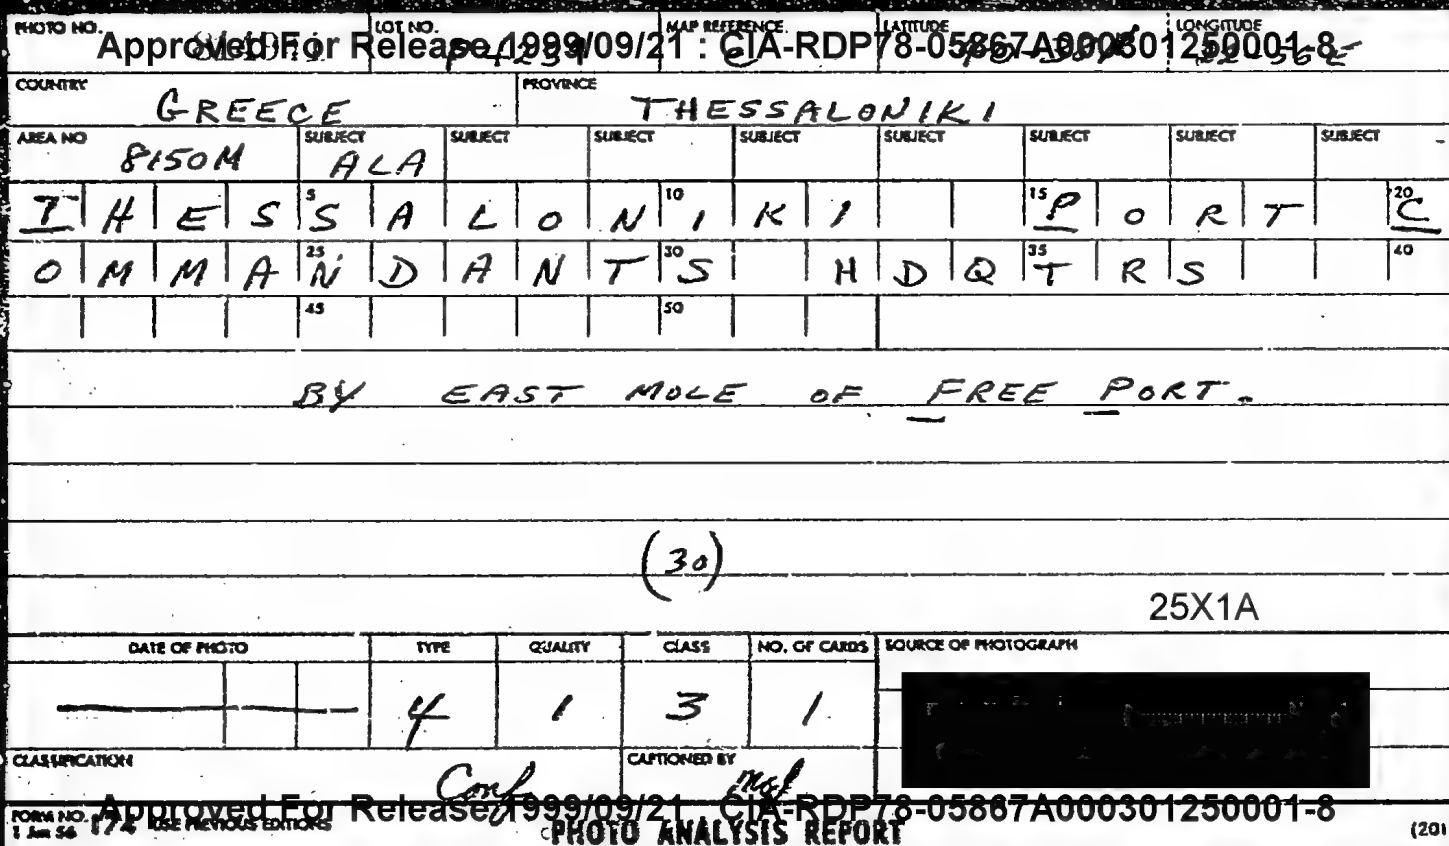 PHOTO NO. LOT NO. MAP REFERENCE LATITUDE LONGITUDE
Approved For Release 1999/09/21 : CIA-RDP78-05867A000301250001-8
COUNTRY GREECE PROVINCE THESSALONIKI
AREA NO 8150M SUBJECT ALA SUBJECT SUBJECT SUBJECT SUBJECT SUBJECT SUBJECT SUBJECT
THESSALONIKI PORT C
5 10 15 20
OMMANDANTS HDQTRS
25 30 35 40
45 50
BY EAST MOLE OF FREE PORT.
(30)
25X1A
DATE OF PHOTO TYPE QUALITY CLASS NO. OF CARDS SOURCE OF PHOTOGRAPH
4 1 3 1
CLASSIFICATION Conf CAPTIONED BY
Approved For Release 1999/09/21 : CIA-RDP78-05867A000301250001-8
FORM NO. 1 Jun 56 USE PREVIOUS EDITIONS PHOTO ANALYSIS REPORT (201